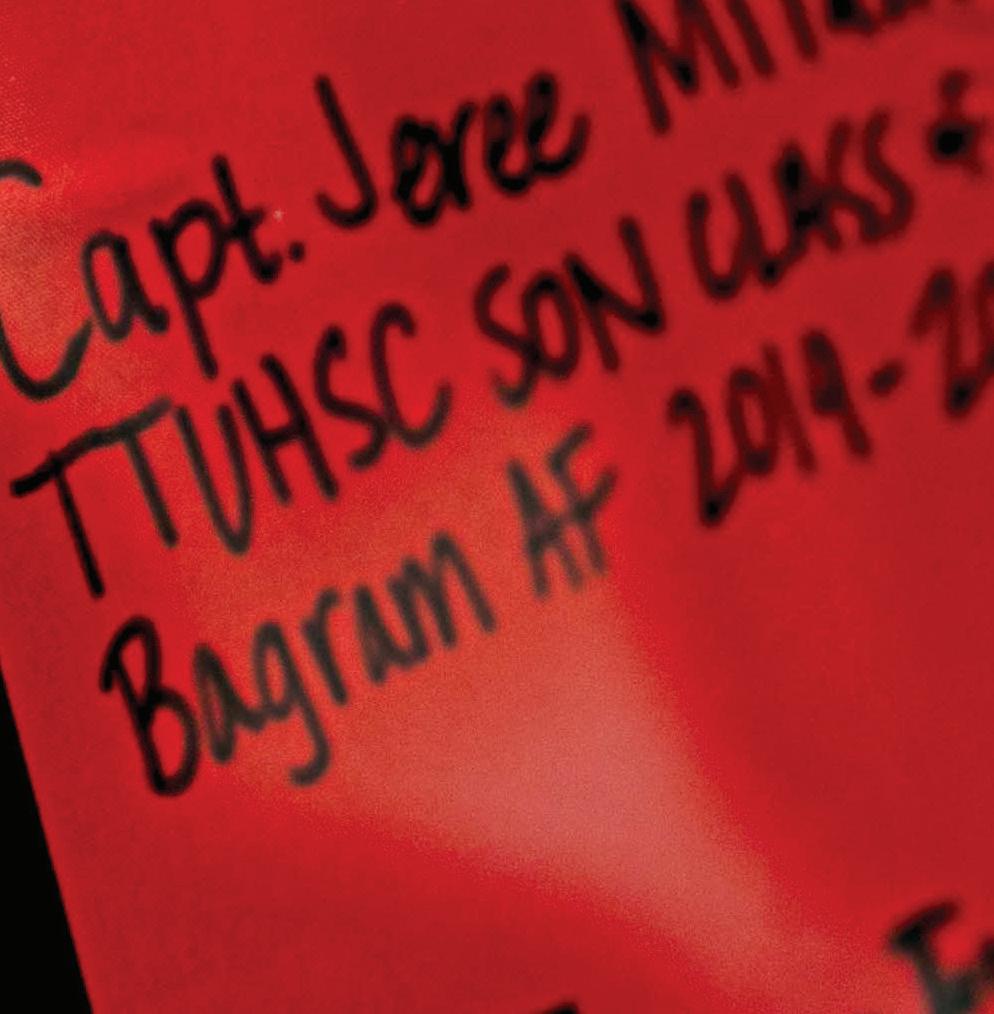 Capt. Jeree
TTUHSC SON CLASS
Bagram AF 2019-